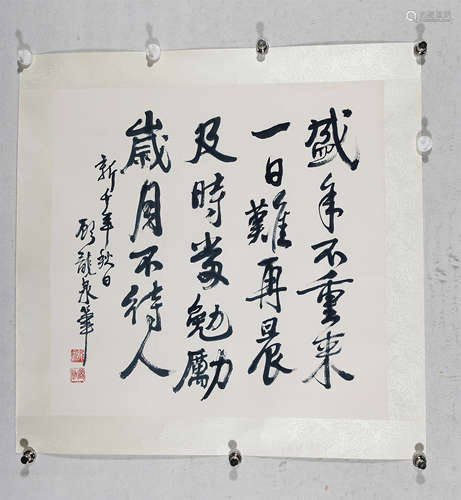 盛年不重来
一日難再晨
及時當勉勵
歲月不待人
新千年秋日
龍泉筆